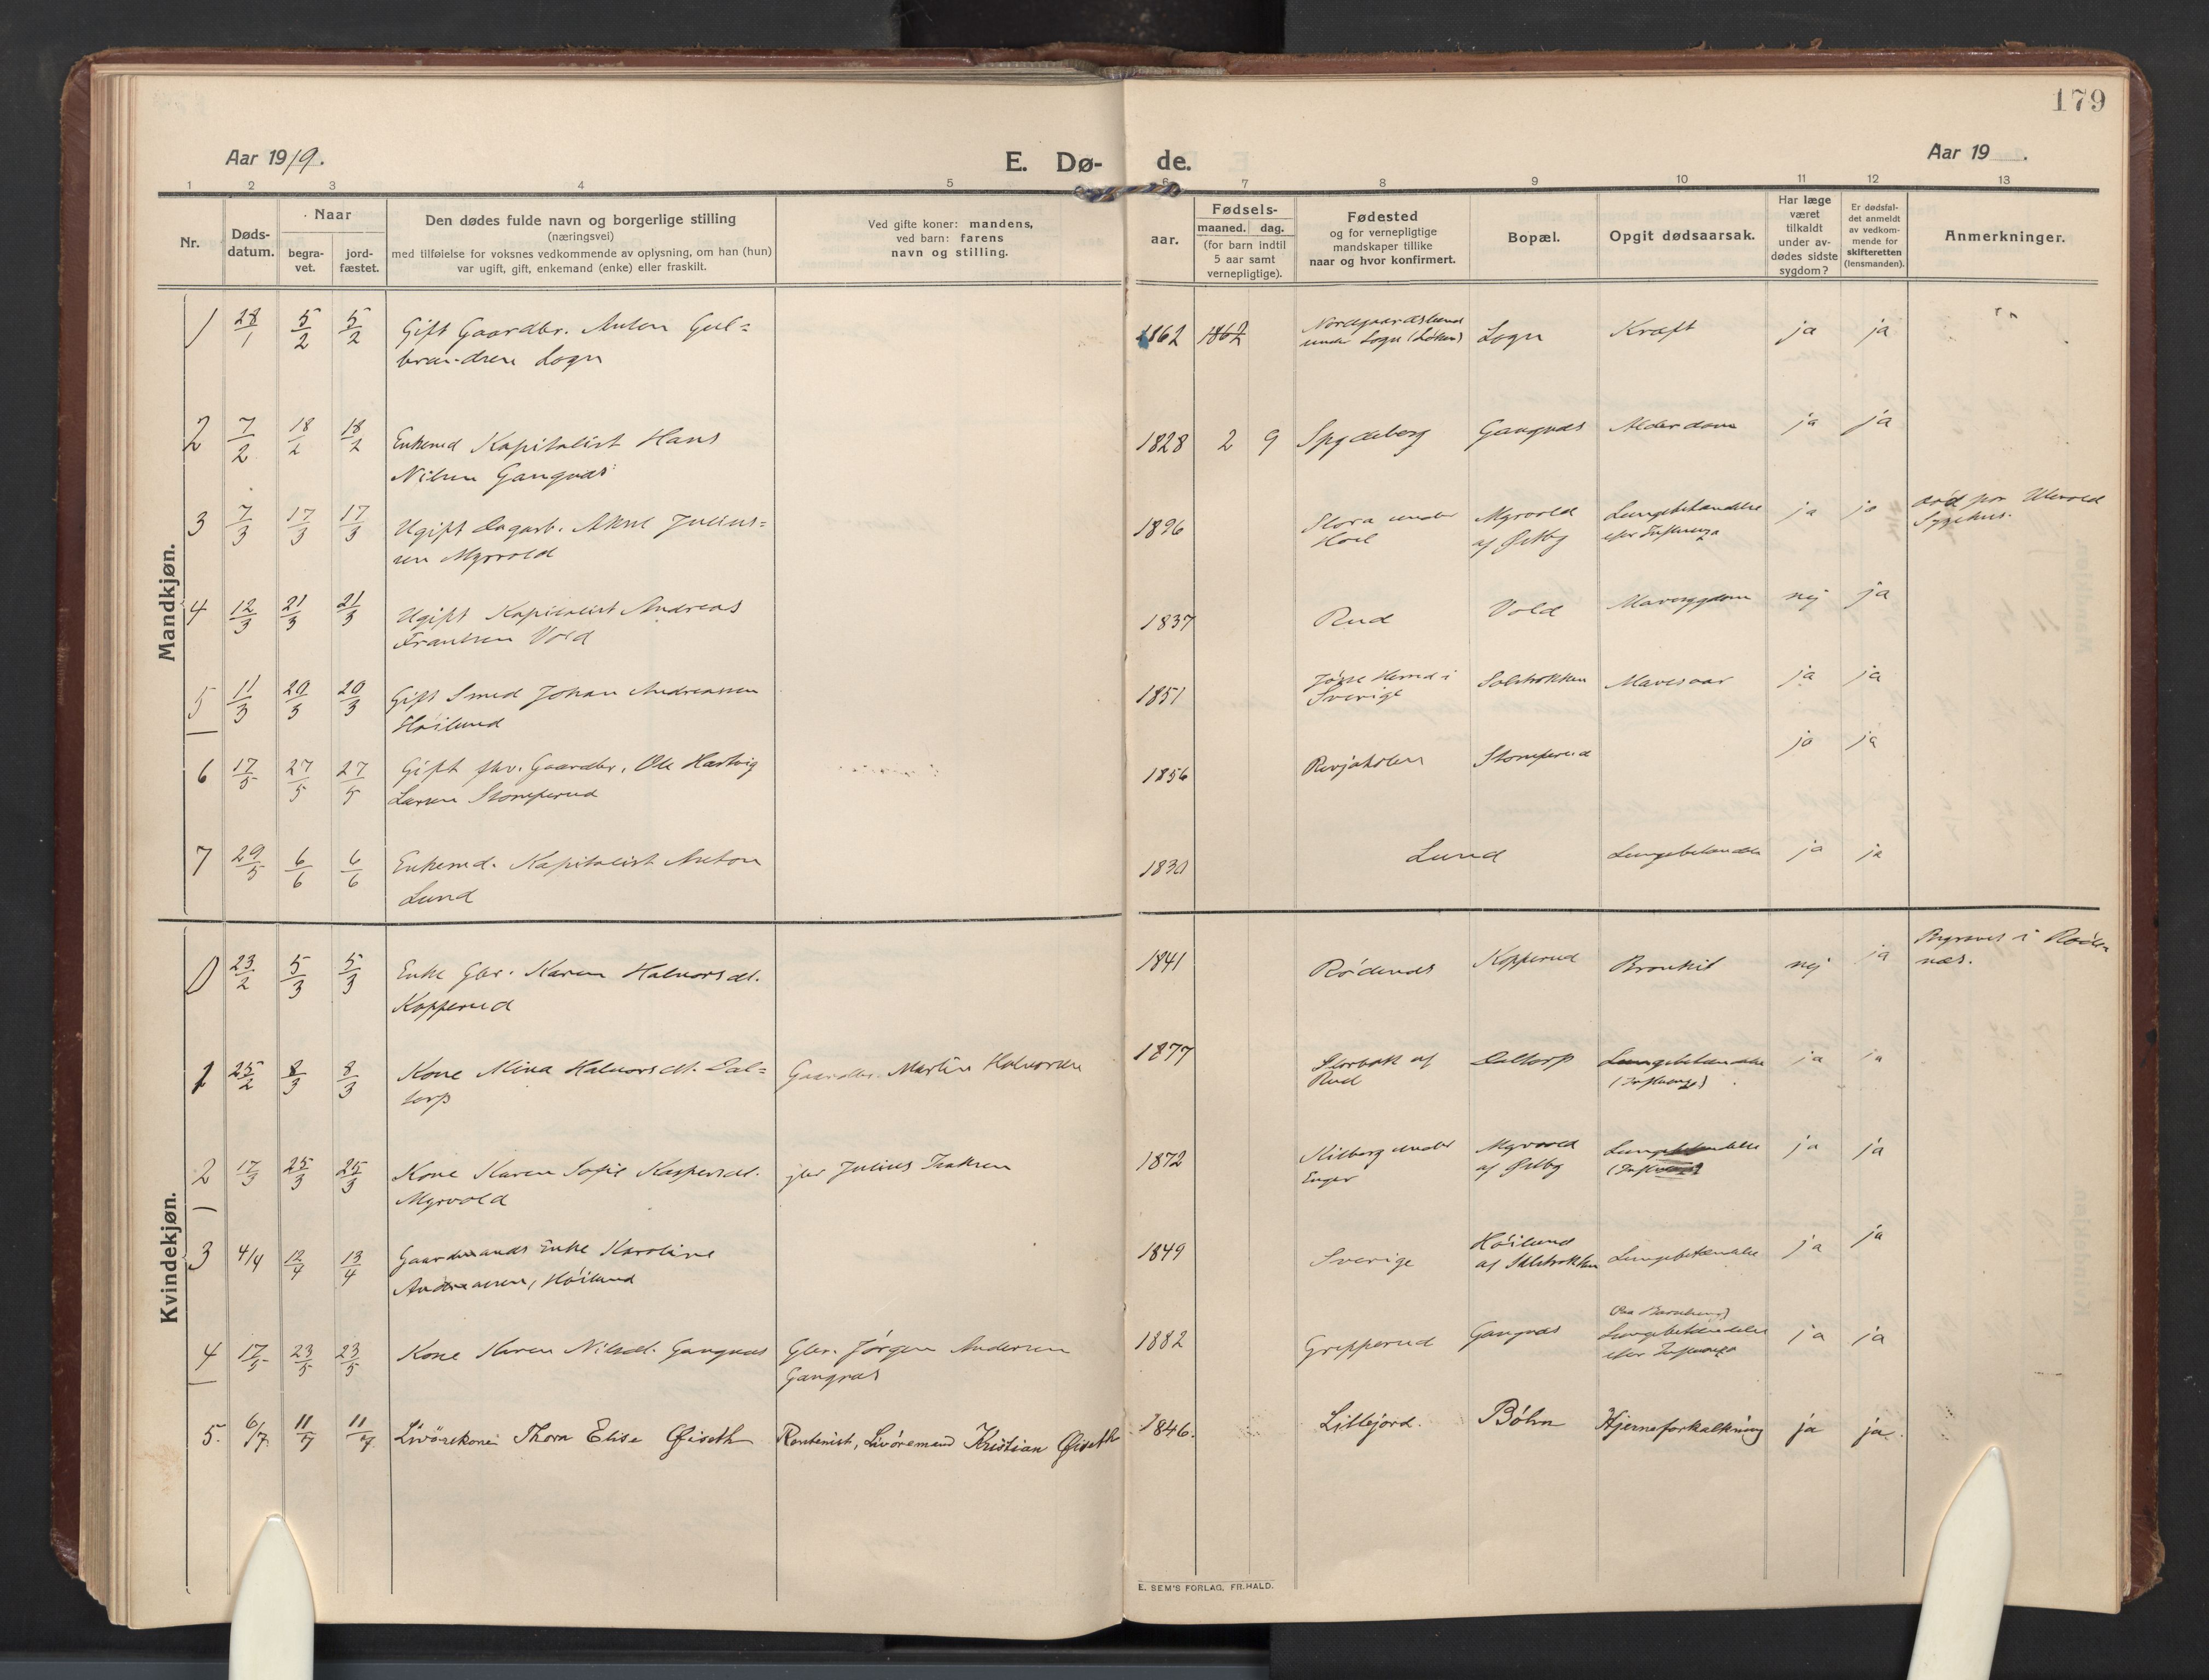 179
Aar 1919.
E. Dø- de.
Aar 19 .
1 2 3 4 5 6 7 8 9 10 11 12 13
Nr.
Døds-
datum.
Naar
begra-
vet.
jord-
fæstet.
Den dødes fulde navn og borgerlige stilling
(næringsvei)
med tilføielse for voksnes vedkommende av oplysning, om han (hun)
var ugift, gift, enkemand (enke) eller fraskilt.
Ved gifte koner: mandens,
ved barn: farens
navn og stilling.
aar.
Fødsels-
maaned. dag.
(for barn indtil
5 aar samt
vernepligtige).
Fødested
og for vernepligtige
mandskaper tillike
naar og hvor konfirmert.
Bopæl.
Opgit dødsaarsak.
Har læge
været
tilkaldt
under av-
dødes sidste
sygdom?
Er dødsfal-
det anmeldt
av vedkom-
mende for
skifteretten
(lensmanden).
Anmerkninger.
Mandkjøn.
1 28/1 5/2 5/2 Gift Gaardbr. Anton Gul-
brandsen Sogn
1862 1862 Nordgaardslund
under Sogn Sogn Kræft ja ja
2 7/2 18/2 18/2 Enkemd Kapitalist Hans
Nilsen Gangnæs
1828 2 9 Spydeberg Gangnæs Alderdom ja ja
3 7/3 17/3 17/3 Ugift Dagarb. Julius-
sen Myrvold
1896 Slora under
Myrvold
af Østby Lungebetændelse
efter Influenza ja ja død paa Ulevold
Sygehus.
4 12/3 21/3 21/3 Ugift Kapitalist Andreas
Frantsen Vold
1837 Rud Vold Mavesygdom nej ja
5 11/3 20/3 20/3 Gift Smed Johan Andreassen
Høilund
1851 Herred i
Sverige Solstokken Mavesaar ja ja
6 17/5 27/5 27/5 Gift fhv. Gaardbr. Ole Hartvig
Larsen Stomperud
1856 Stomperud ja ja
7 29/5 6/6 6/6 Enkemd. Kapitalist Anton
Lund
1830 Lund Lungebetændelse ja ja
Kvindekjøn.
0 23/2 5/3 5/3 Enke Gbr. Karen Halvorsdt.
Kopperud
1841 Rødenæs Kopperud Bronkit nej ja Begravet i Røde-
næs.
1 25/2 8/3 8/3 Kone Mina Halvorsdt. Dal-
torp
Gaardbr. Martin Halvorsen
1877 Storbæk af
Rud Daltorp Lungebetændelse
(Influenza) ja ja
2 17/3 25/3 25/3 Kone Karen Sofie Kaspersdt.
Myrvold
gbr Julius Isaksen
1872 Kilborg under
Enger Myrvold
af Østby Lungebetændelse
(Influenza) ja ja
3 4/4 12/4 13/4 Gaardmands Enke Karoline
Andreasen, Høilund
1849 Sverige Høilund
af Solstokken Lungebetændelse ja ja
4 17/5 23/5 23/5 Kone Karen Nilsdt. Gangnæs
Gbr. Jørgen Andersen
Gangnæs
1882 Grepperud Gangnæs
Lungebetændelse
efter Influenza ja ja
5. 6/7 11/7 11/7 Livørekone Thora Elise Øiseth
Rentenist, Livøremand Kristian Øiseth
1846. Lillejord. Böhn Hjerneforkalkning ja ja.
E. SEM'S FORLAG, FR.HALD.